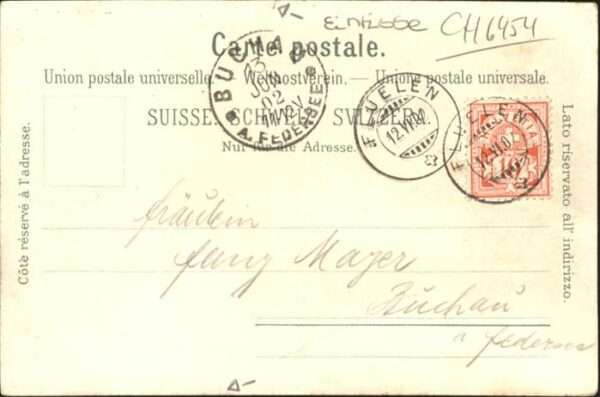 Einfisse CH6454
Carte postale.
Union postale universelle. — Weltpostverein. — Unione postale universale.
SUISSE. SCHWEIZ. SVIZZERA.
Nur für die Adresse.
Côté réservé à l'adresse.
Lato riservato all' indirizzo.
BUCHAU
13
JUN
02
11-12V
A. FEDERSEE
FLUELEN
12.VI.02
FLUELEN
12.VI.02
10
Fräulein
Fany Mayer
Buchau
a Federsee